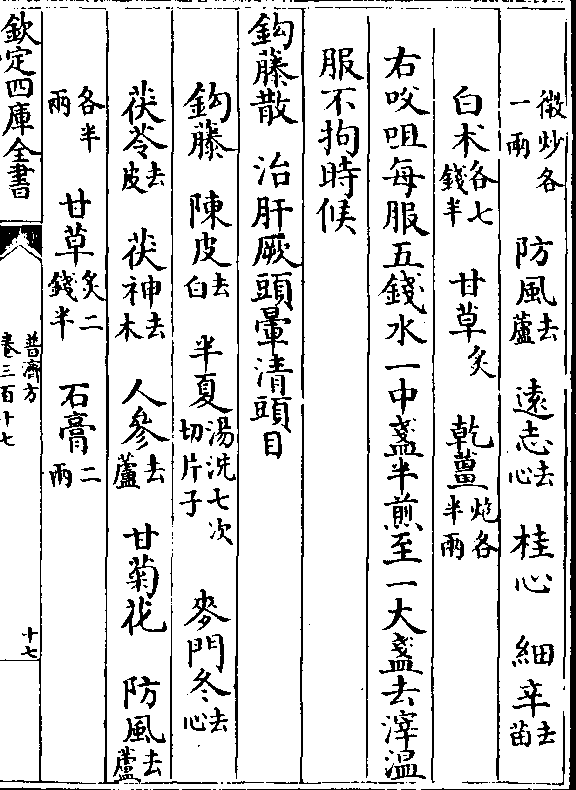 微炒各一兩 防風去蘆 遠志去心 桂心 細辛去苗
白术各七錢半 甘草炙 乾薑炮各半兩
右㕮咀每服五錢水一中盞半煎至一大盞去滓温
服不拘時候
鈎藤散 治肝厥頭暈清頭目
鈎藤 陳皮去白 半夏湯洗七次切片子 麥門冬去心
茯苓去皮 茯神去木 人參去蘆 甘菊花 防風去蘆
各半兩 甘草炙二錢半 石膏二兩
欽定四庫全書 普濟方卷三百十七 十七